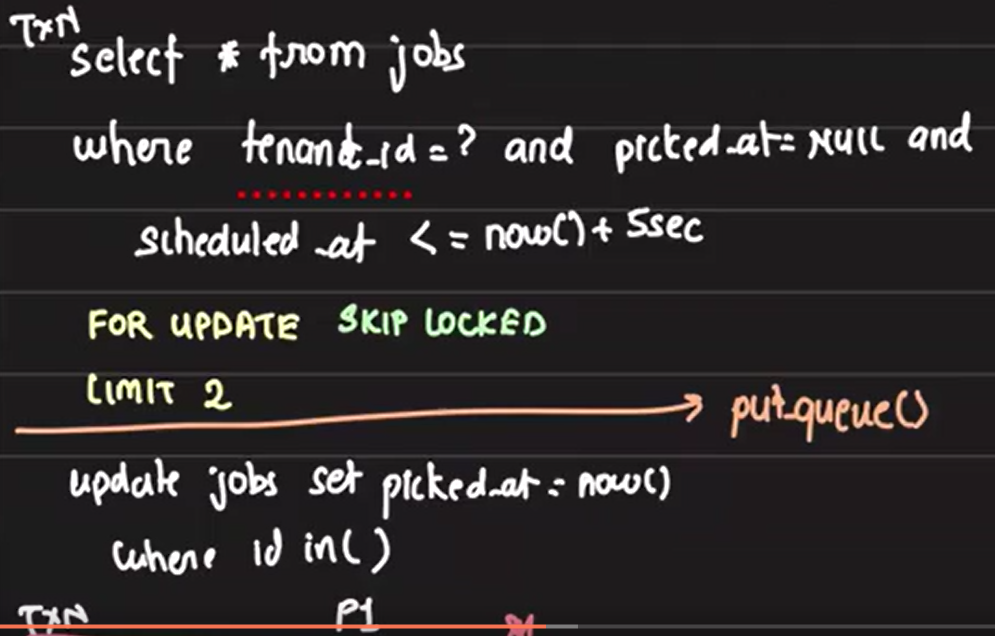 TXN
select * from jobs
where tenant_id = ? and picked_at = NULL and
scheduled_at <= now() + 5sec
FOR UPDATE SKIP LOCKED
LIMIT 2
put_queue()
update jobs set picked_at = now()
where id in ( )
TXN P1